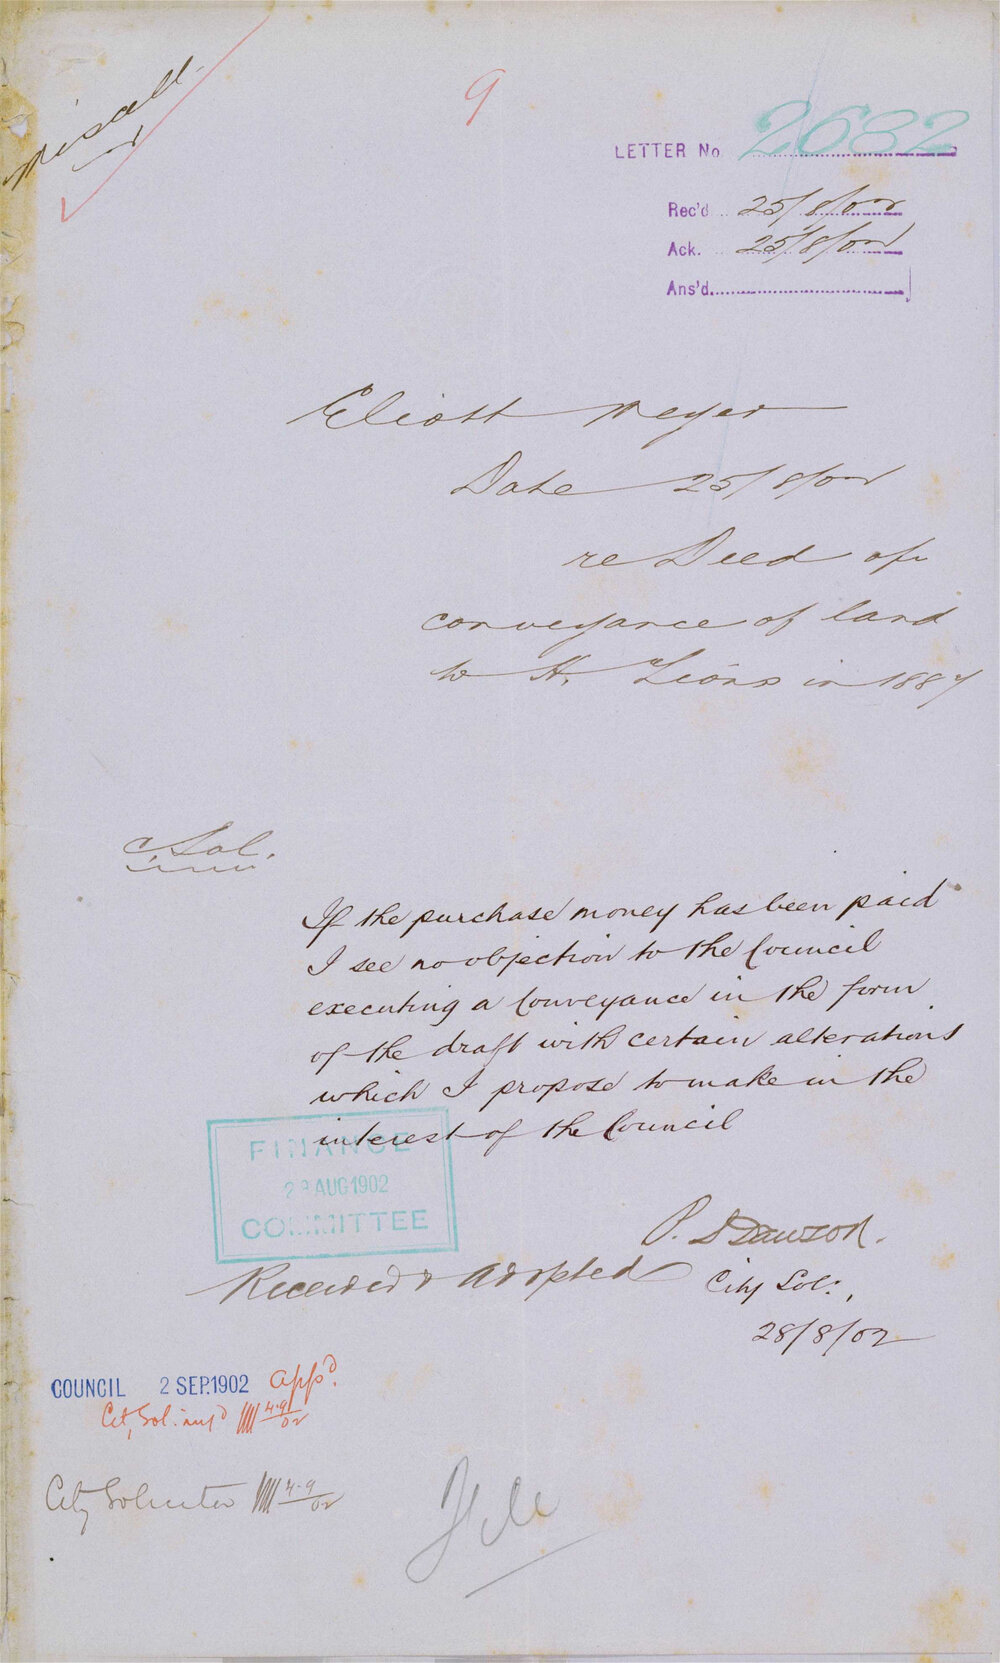 9
LETTER No. 2682
Rec'd 25/8/02
Ack. 25/8/02
Ans'd
Eliott Meyer
Date 25/8/02
re Deed of
conveyance of land
to H. Lions in 1887
C. Sol.
If the purchase money has been paid
I see no objection to the Council
executing a Conveyance in the form
of the draft with certain alterations
which I propose to make in the
interest of the Council
FINANCE
28 AUG 1902
COMMITTEE
P. S Dawson.
City Sol:,
28/8/02
Received & Adopted
COUNCIL 2 SEP. 1902 Appd.
City Sol: infd 4.9/02
City Solicitor 4.9/02
File